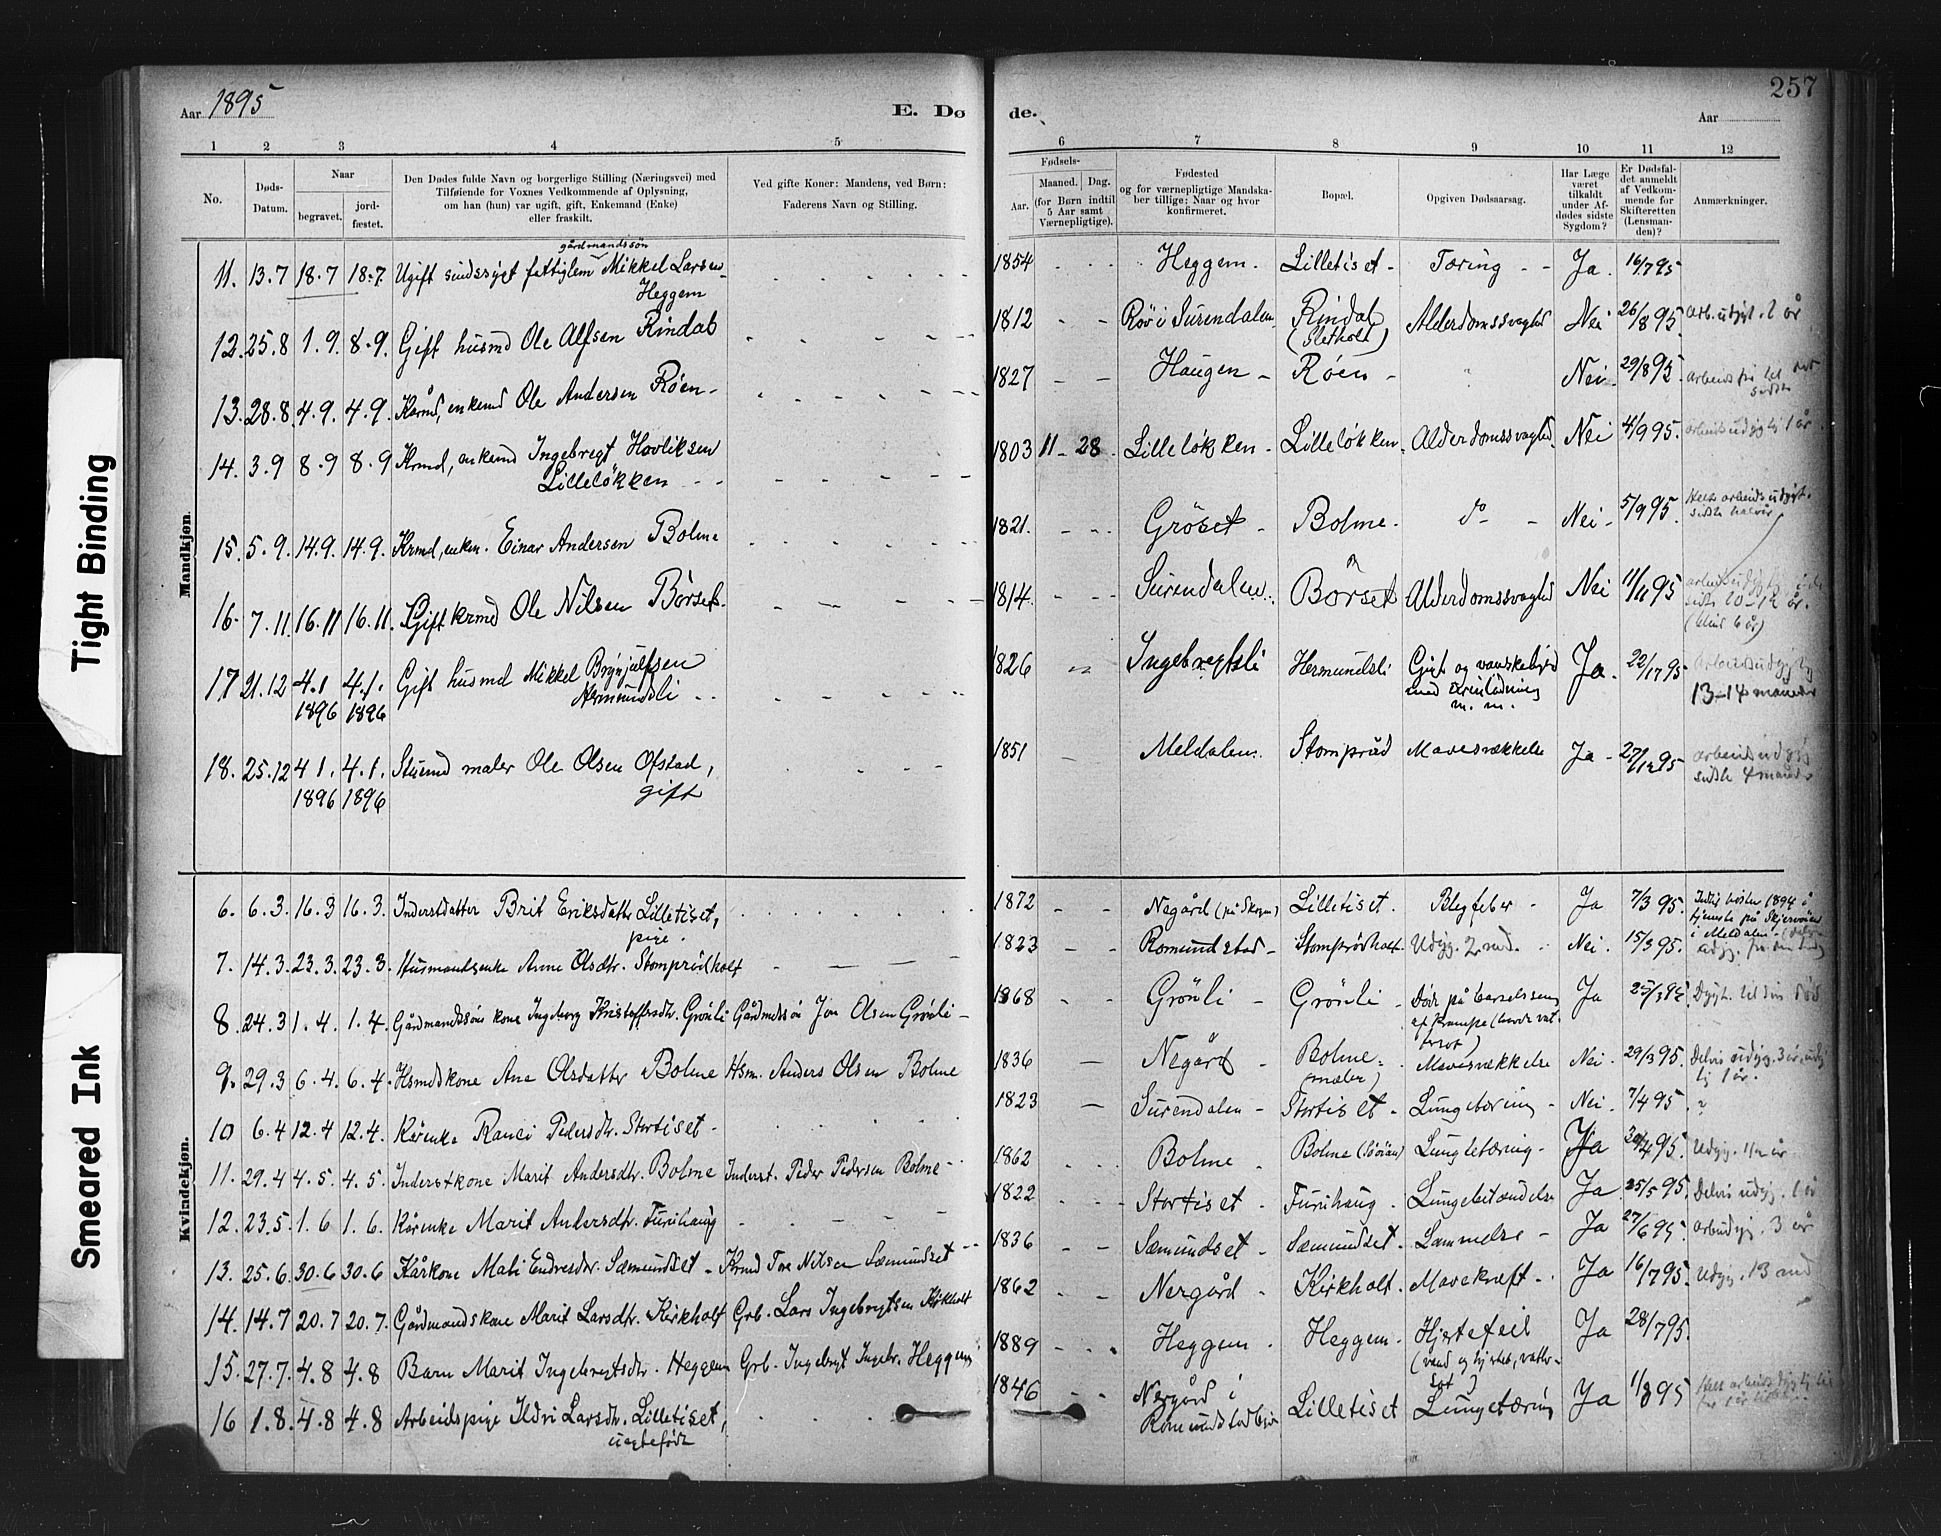 Tight Binding
Smeared Ink
Aar 1895
E. Dø
de.
257
Aar
1 2 3 4 5 6 7 8 9 10 11 12
No.
Døds-Datum.
Naar
begravet.
jord-fæstet.
Den Dødes fulde Navn og borgerlige Stilling (Næringsvei) med
Tilføiende for Voxnes Vedkommende af Oplysning,
om han (hun) var ugift, gift, Enkemand (Enke)
eller fraskilt.
Ved gifte Koner: Mandens, ved Børn:
Faderens Navn og Stilling.
Fødsels-
Aar.
Maaned. Dag.
(for Børn indtil
5 Aar samt
Værnepligtige).
Fødested
og for værnepligtige Mandska-
ber tillige: Naar og hvor
konfirmeret.
Bopæl.
Opgiven Dødsaarsag.
Har Læge
været
tilkaldt
under Af-
dødes sidste
Sygdom?
Er Dødsfal-
det anmeldt
af Vedkom-
mende for
Skifteretten
(Lensman-
den)?
Anmærkninger.
Mandkjøn.
gårdmandssøn
11. 13.7 18.7 18.7. Ugift sindssygt fattiglem Mikkel Larsen 1854 Heggem. Lilletiset Tæring Ja. 16/7 95
Heggem
12. 25.8 1.9. 8.9. Gift husmd Ole Alfsen Rindal 1812 Røv i Surendalen Rindal Alderdomssvaghed Nei 26/8 95 Arb.udygt. 2 år
(Sletholt)
13. 28.8. 4.9. 4.9. Kårmd, enkemd Ole Andersen Røen 1827 Haugen Røen " Nei 29/8 95. arbeidsfør til det
sidste
14. 3.9 8.9 8.9 Krmd, enkemd Ingebregt Havliksen 1803 11 28 Lilleløkken Lilleløkken Alderdomssvaghed Nei 4/9 95. arbeidsudygtig 1 år
Lilleløkken
15. 5.9. 14.9. 14.9. Krmd, enkem. Einar Andersen Bolme 1821. Grøset Bolme do Nei 5/9 95. Helt arbeidsudygt.
sidste halvår
16. 7.11. 16.11 16.11. Gift krmd Ole Nilsen Børset 1814 Surendalen Børset Alderdomssvaghed Nei 11/11 95 arbeidsudygtig i de
sidste 10–12 år.
(blind 6 år)
17 21.12 4.1 4.1. Gift husmd Mikkel Brynjulfsen 1826 Ingebregtsli Hermundsli Gigt og vanskelighed Ja. 22/12 95 Arbeidsudygtig
1896 1896 Hermundsli med Urinladning 13–14 måneder
m. m.
18. 25.12 4.1. 4.1. Stuemd maler Ole Olsen Ofstad, 1851 Meldalen. Stomprød Mavesvækkelse Ja 27/12 95 arbeidsudygtig
1896 1896 gift sidste 4 månd.
Kvindekjøn.
6. 6.3. 16.3 16.3. Inderstdatter Brit Eriksdatter Lilletiset, 1872 Negård (på Skogen) Lilletiset. Blegfeber Ja 7/3 95. høsten 1894 i
pige. tjeneste på
i Meldalen
7. 14.3. 23.3. 23.3. Husmandsenke Anne Olsdtr. Stomprødholt 1823 Romundstad Stomprødholt Udyg. 2 md. Nei. 15/3 95.
8. 24.3 1.4. 1.4. Gårdmandssøns kone Ingeborg Kristoffersdtr. Grønli Gårdmdssøn Jon Olsen Grønli 1868 Grønli Grønli Døde på barselsseng Ja 25/3 95 Dygt. til sin død
af krampe (havde vat-
tersot)
9. 29.3 6.4. 6.4. Hsmdskone Ane Olsdatter Bolme Hsm. Anders Olsen Bolme 1836 Negård Bolme Mavesvækkelse Nei. 29/3 95. Delvis udyg. 3 år, udyg
(mæler) tig 1 år.
10 6.4 12.4 12.4. Kårenke Ranei Pedersdtr. Stortiset 1823 Surendalen Stortiset Lungetæring Nei. 7/4 95. "
11. 29.4 4.5. 4.5. Inderstkone Marit Andersdtr. Bolme Inderst. Peder Pedersen Bolme 1862 Bolme Bolme Lungetæring Ja 30/4 95. Udyg. 1/2 år
12. 23.5. 1.6 1.6. Kårenke Marit Andersdtr. Furuhaug 1822 Stortiset Furuhaug Lungebetændelse Ja 25/5 95. Delvis udyg. 1 år
13. 25.6. 30.6 30.6 Kårkone Mali Endresdtr. Sæmundset Krmd Tore Nilsen Sæmundset 1836 Sæmundset Sæmundset. Lammelse Ja 27/6 95. arbudyg. 3 år
14. 14.7 20.7 20.7. Gårdmandskone Marit Larsdtr. Kirkholt Grb. Lars Ingebregtsen Kirkholt 1862 Nergård Kirkholt. Mavekræft Ja 16/7 95. Udyg. 13 md
15. 27.7. 4.8 4.8 Barn Marit Ingebregtsdtr. Heggem Grb. Ingebregt Ingebr. Heggem 1889 Heggem Heggem. Hjertefeil Ja 28/7 95.
(vand og hjertet, vatter-
sot)
16 1.8. 4.8 4.8 Arbeidspige Ildri Larsdtr. Lilletiset, 1846 Nergård i Lilletiset Lungetæring Ja 1/8 95
uægtefødt Romundstadbygd